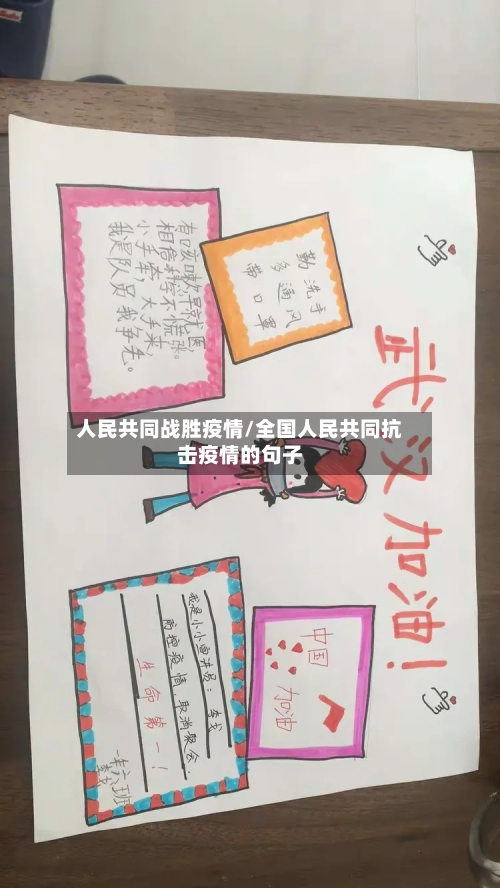 武汉加油!
勤洗手
多通风
带口罩
有咳嗽,早就医,
相信科学不慌张。
小手牵,大手来,
我是队员我争先。
人民共同战胜疫情/全国人民共同抗
击疫情的句子
中国
加油
我是小小宣讲员:李戈
防控疫情,取消聚会,
生命第一!
一年六班